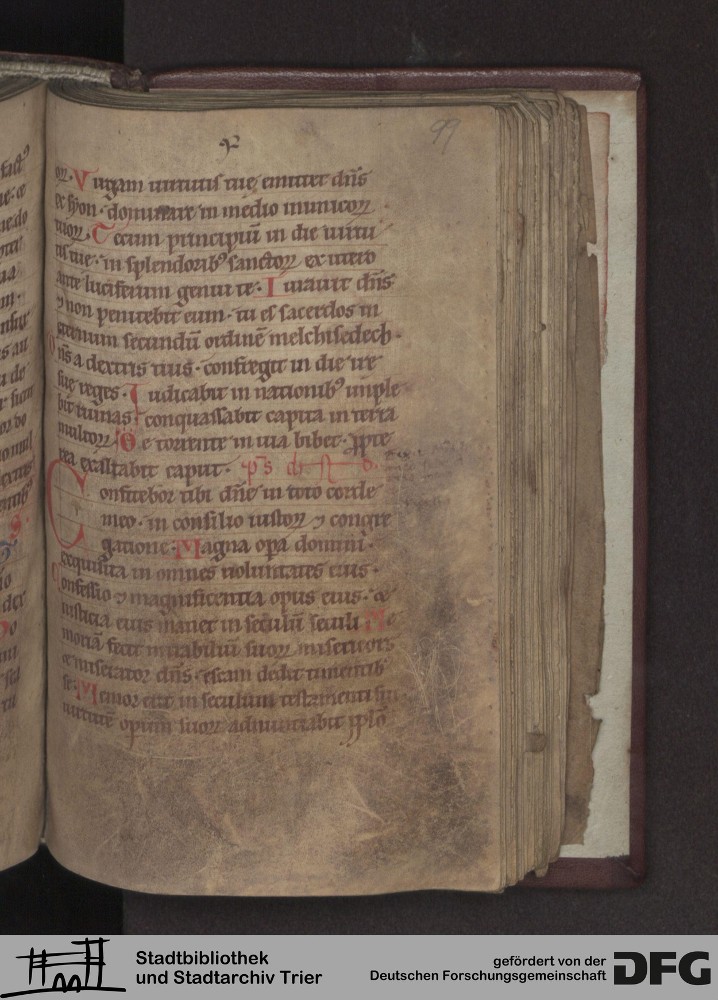 99
oꝝ. Virgam uirtutis tue emittet dn̄s
ex syon. dominare in medio inimicoꝝ
tuoꝝ. Tecum principiū in die uirtu
tis tue. in splendoribꝰ sanctoꝝ ex utero
ante luciferum genui te. Iurauit dn̄s
⁊ non penitebit eum. tu es sacerdos in
eternum secundū ordinē melchisedech.
Dn̄s a dextris tuis. confregit in die ire
sue reges. Iudicabit in nationibꝰ imple
bit ruinas. conquassabit capita in terra
multoꝝ. De torrente in uia bibet. ꝓpte
rea exaltabit caput.
Confitebor tibi dn̄e in toto corde
meo. in consilio iustoꝝ ⁊ congre
gatione. Magna opa domini.
exquisita in omnes uoluntates eius.
Confessio ⁊ magnificentia opus eius. ⁊
iusticia eius manet in seculū seculi Me
moriā fecit mirabiliū suoꝝ misericors
et miserator dn̄s. escam dedit timentibꝰ
se. Memor erit in seculum testamenti sui
uirtutē operum suoꝝ adnuntiabit ꝓplō
Stadtbibliothek
und Stadtarchiv Trier
gefördert von der
Deutschen Forschungsgemeinschaft
DFG